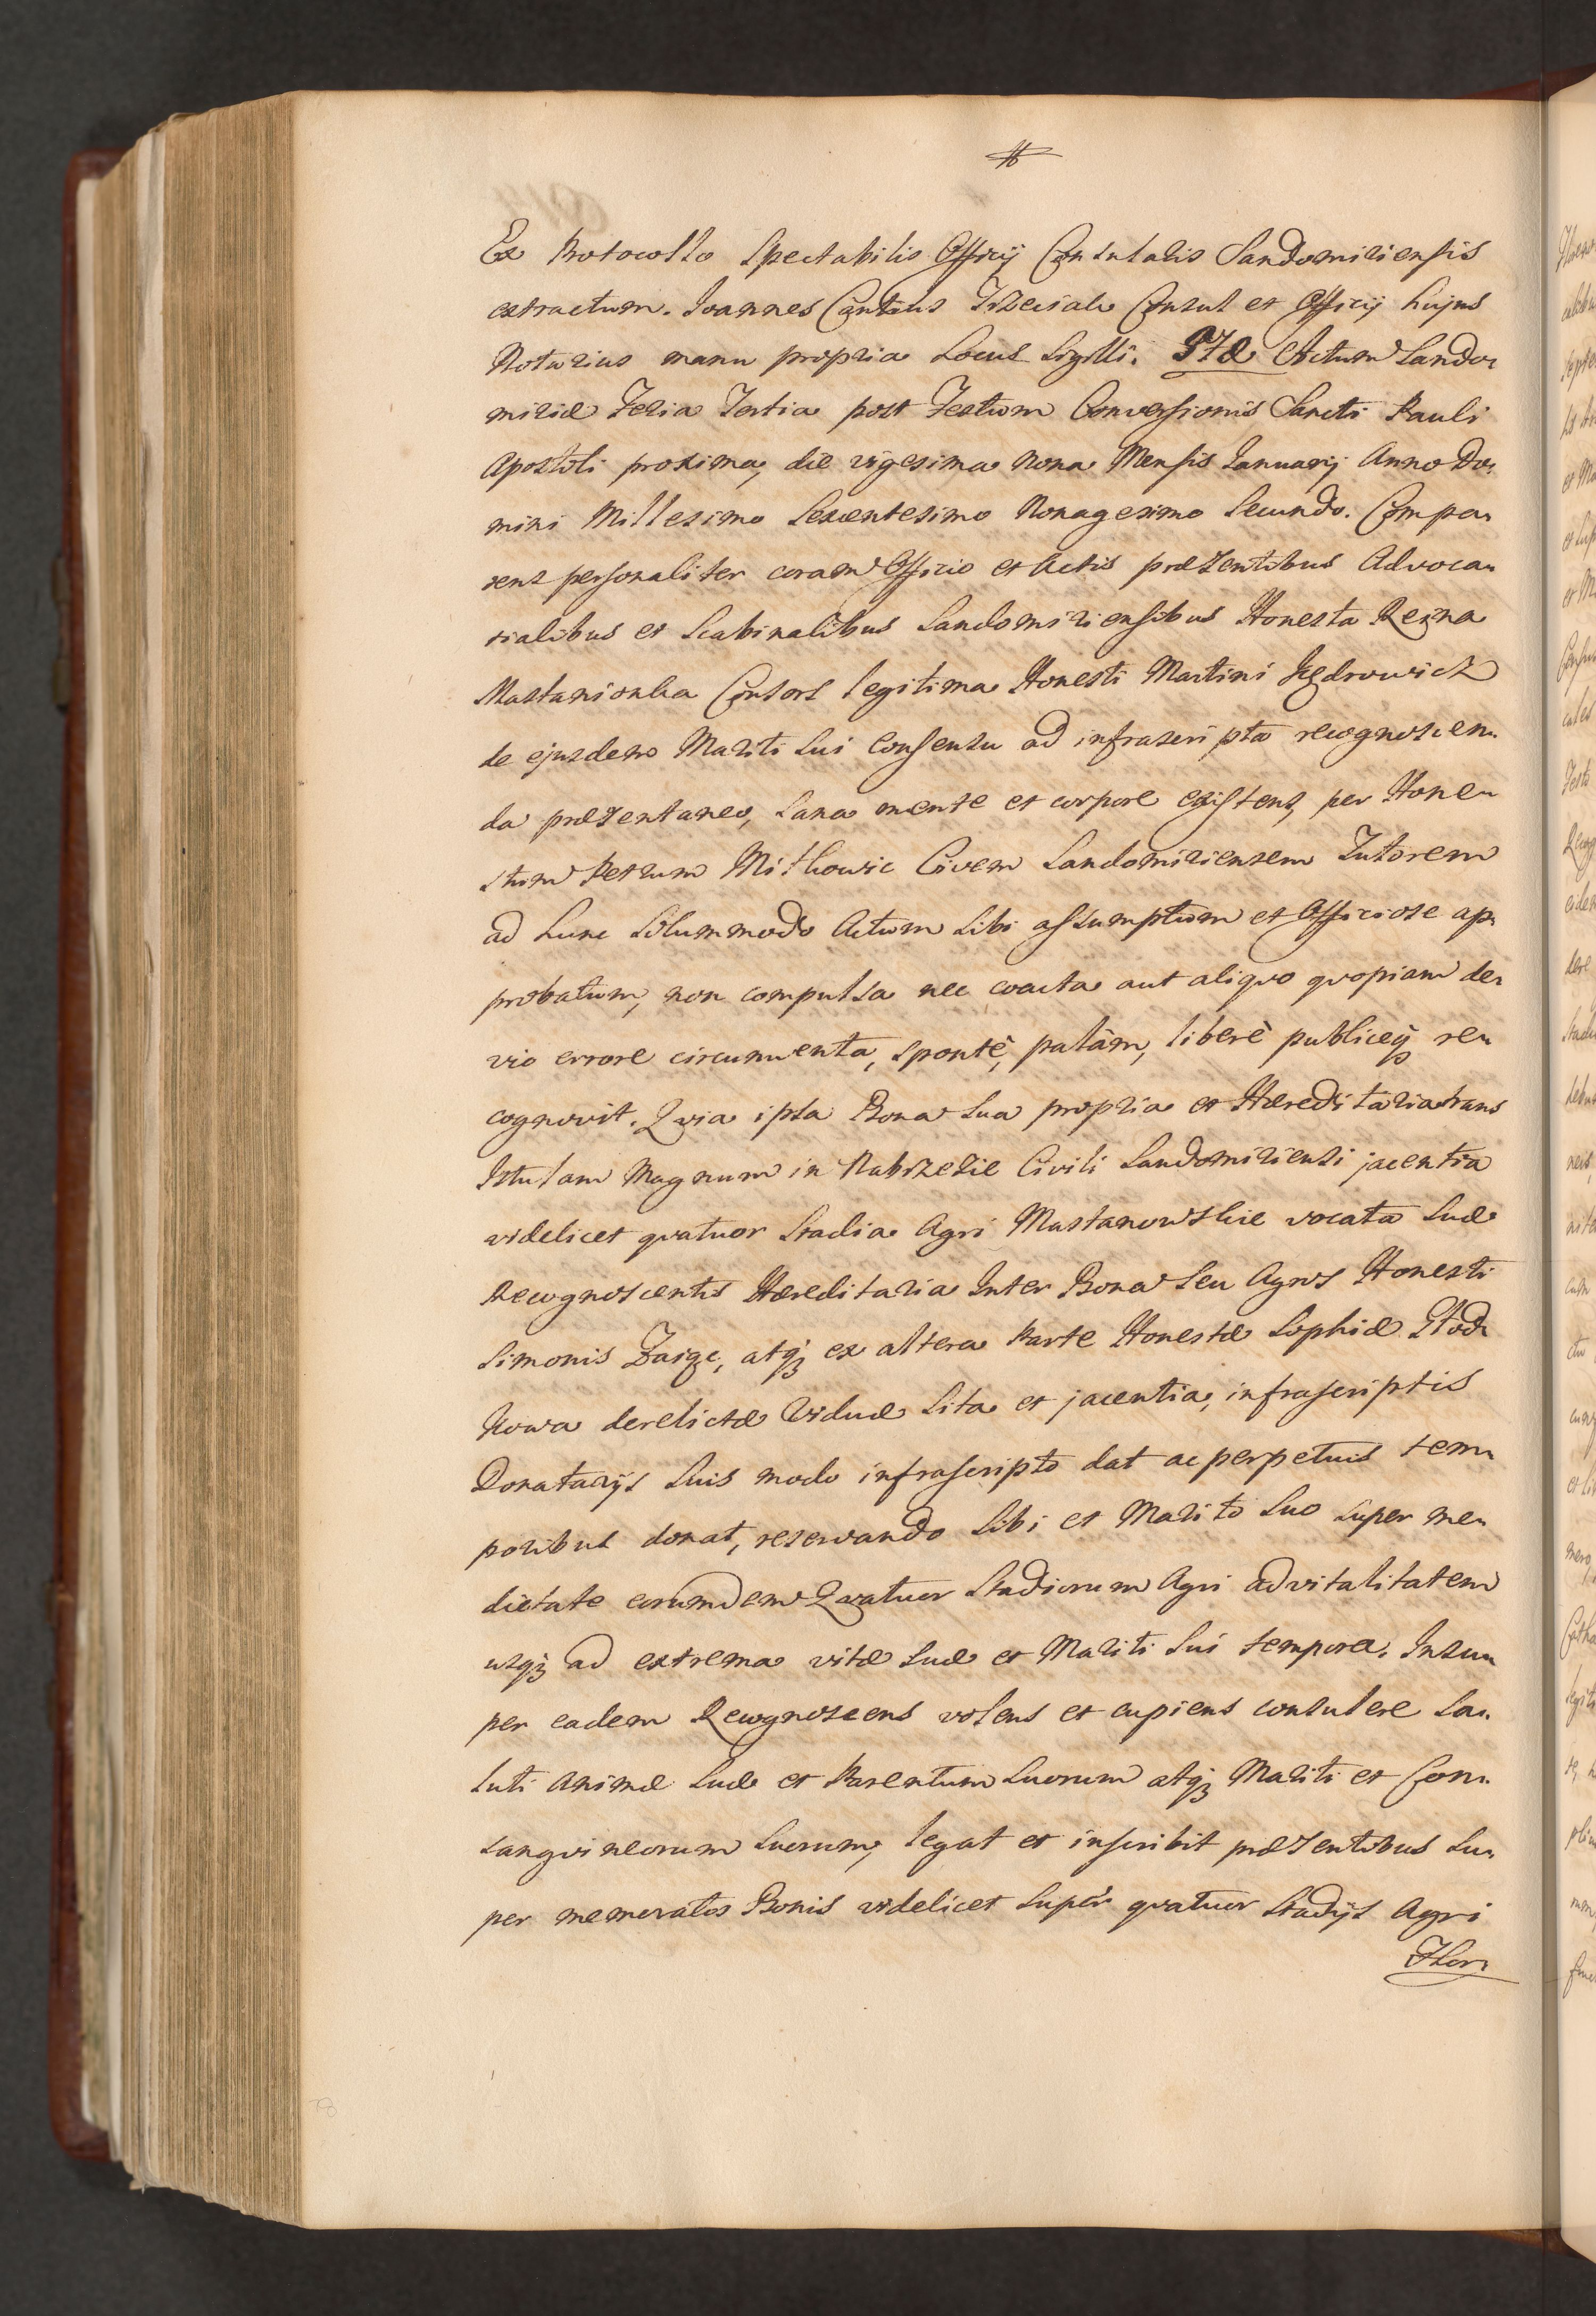 Ex Protocollo Spectabilis Officij Consularis Sandomiriensis
extractum. Joannes Cantius Trzeciak Consul et Officij hujus
Notarius manu propria Locus Sigilli. Actum Sando-
miriæ Feria Tertia post Festum Conversionis Sancti Pauli
Apostoli proxima, die vigesima nona Mensis Januarij Anno Do-
mini Millesimo Sexcentesimo Nonagesimo Secundo. Compa-
rens personaliter coram Officio et Actis præsentibus Advoca-
tialibus et Scabinalibus Sandomiriensibus Honesta Regina
Mastanionka Consors legitima Honesti Martini Jędrowicz
de ejusdem Mariti sui consensu ad infrascripta recognoscen-
da præsentaneo, sana mente et corpore existens, per Hone-
stum Petrum Mitkowic Civem Sandomiriensem Tutorem
ad hunc solummodo Actum sibi assumptum et Officiose ap-
probatum, non compulsa nec coacta aut aliqvo qvopiam de-
vio errore circumventa, spontè, palàm, liberè publiceq₃ re-
cognovit. Qvia ipsa Bona sua propria et Hæreditaria trans
Istulam Magnum in Nabrzezie Civili Sandomiriensi jacentia
videlicet qvatuor Stadia Agri Mastanowskie vocata suæ
Recognoscentis Hæreditaria Inter Bona seu Agros Honesti
Simonis atq₃ ex altera Parte Honestæ Sophiæ Stod-
kowa derelictæ Viduæ sita et jacentia, infrascriptis
Donatarijs suis modo infrascripto dat ac perpetuis tem-
poribus donat, reservando sibi et Marito suo super me-
dietate eorumdem Qvatuor Stadiorum Agri advitalitatem
usq₃ ad extrema vitæ suæ et Mariti sui tempora. Insu-
per eadem Recognoscens volens et cupiens consulere sa-
luti animæ suæ et Parentum suorum atq₃ Mariti et Con-
sangvineorum suorum, legat et inscribit præsentibus su-
per memoratos Bonis videlicet super qvatuor Stadijs Agri